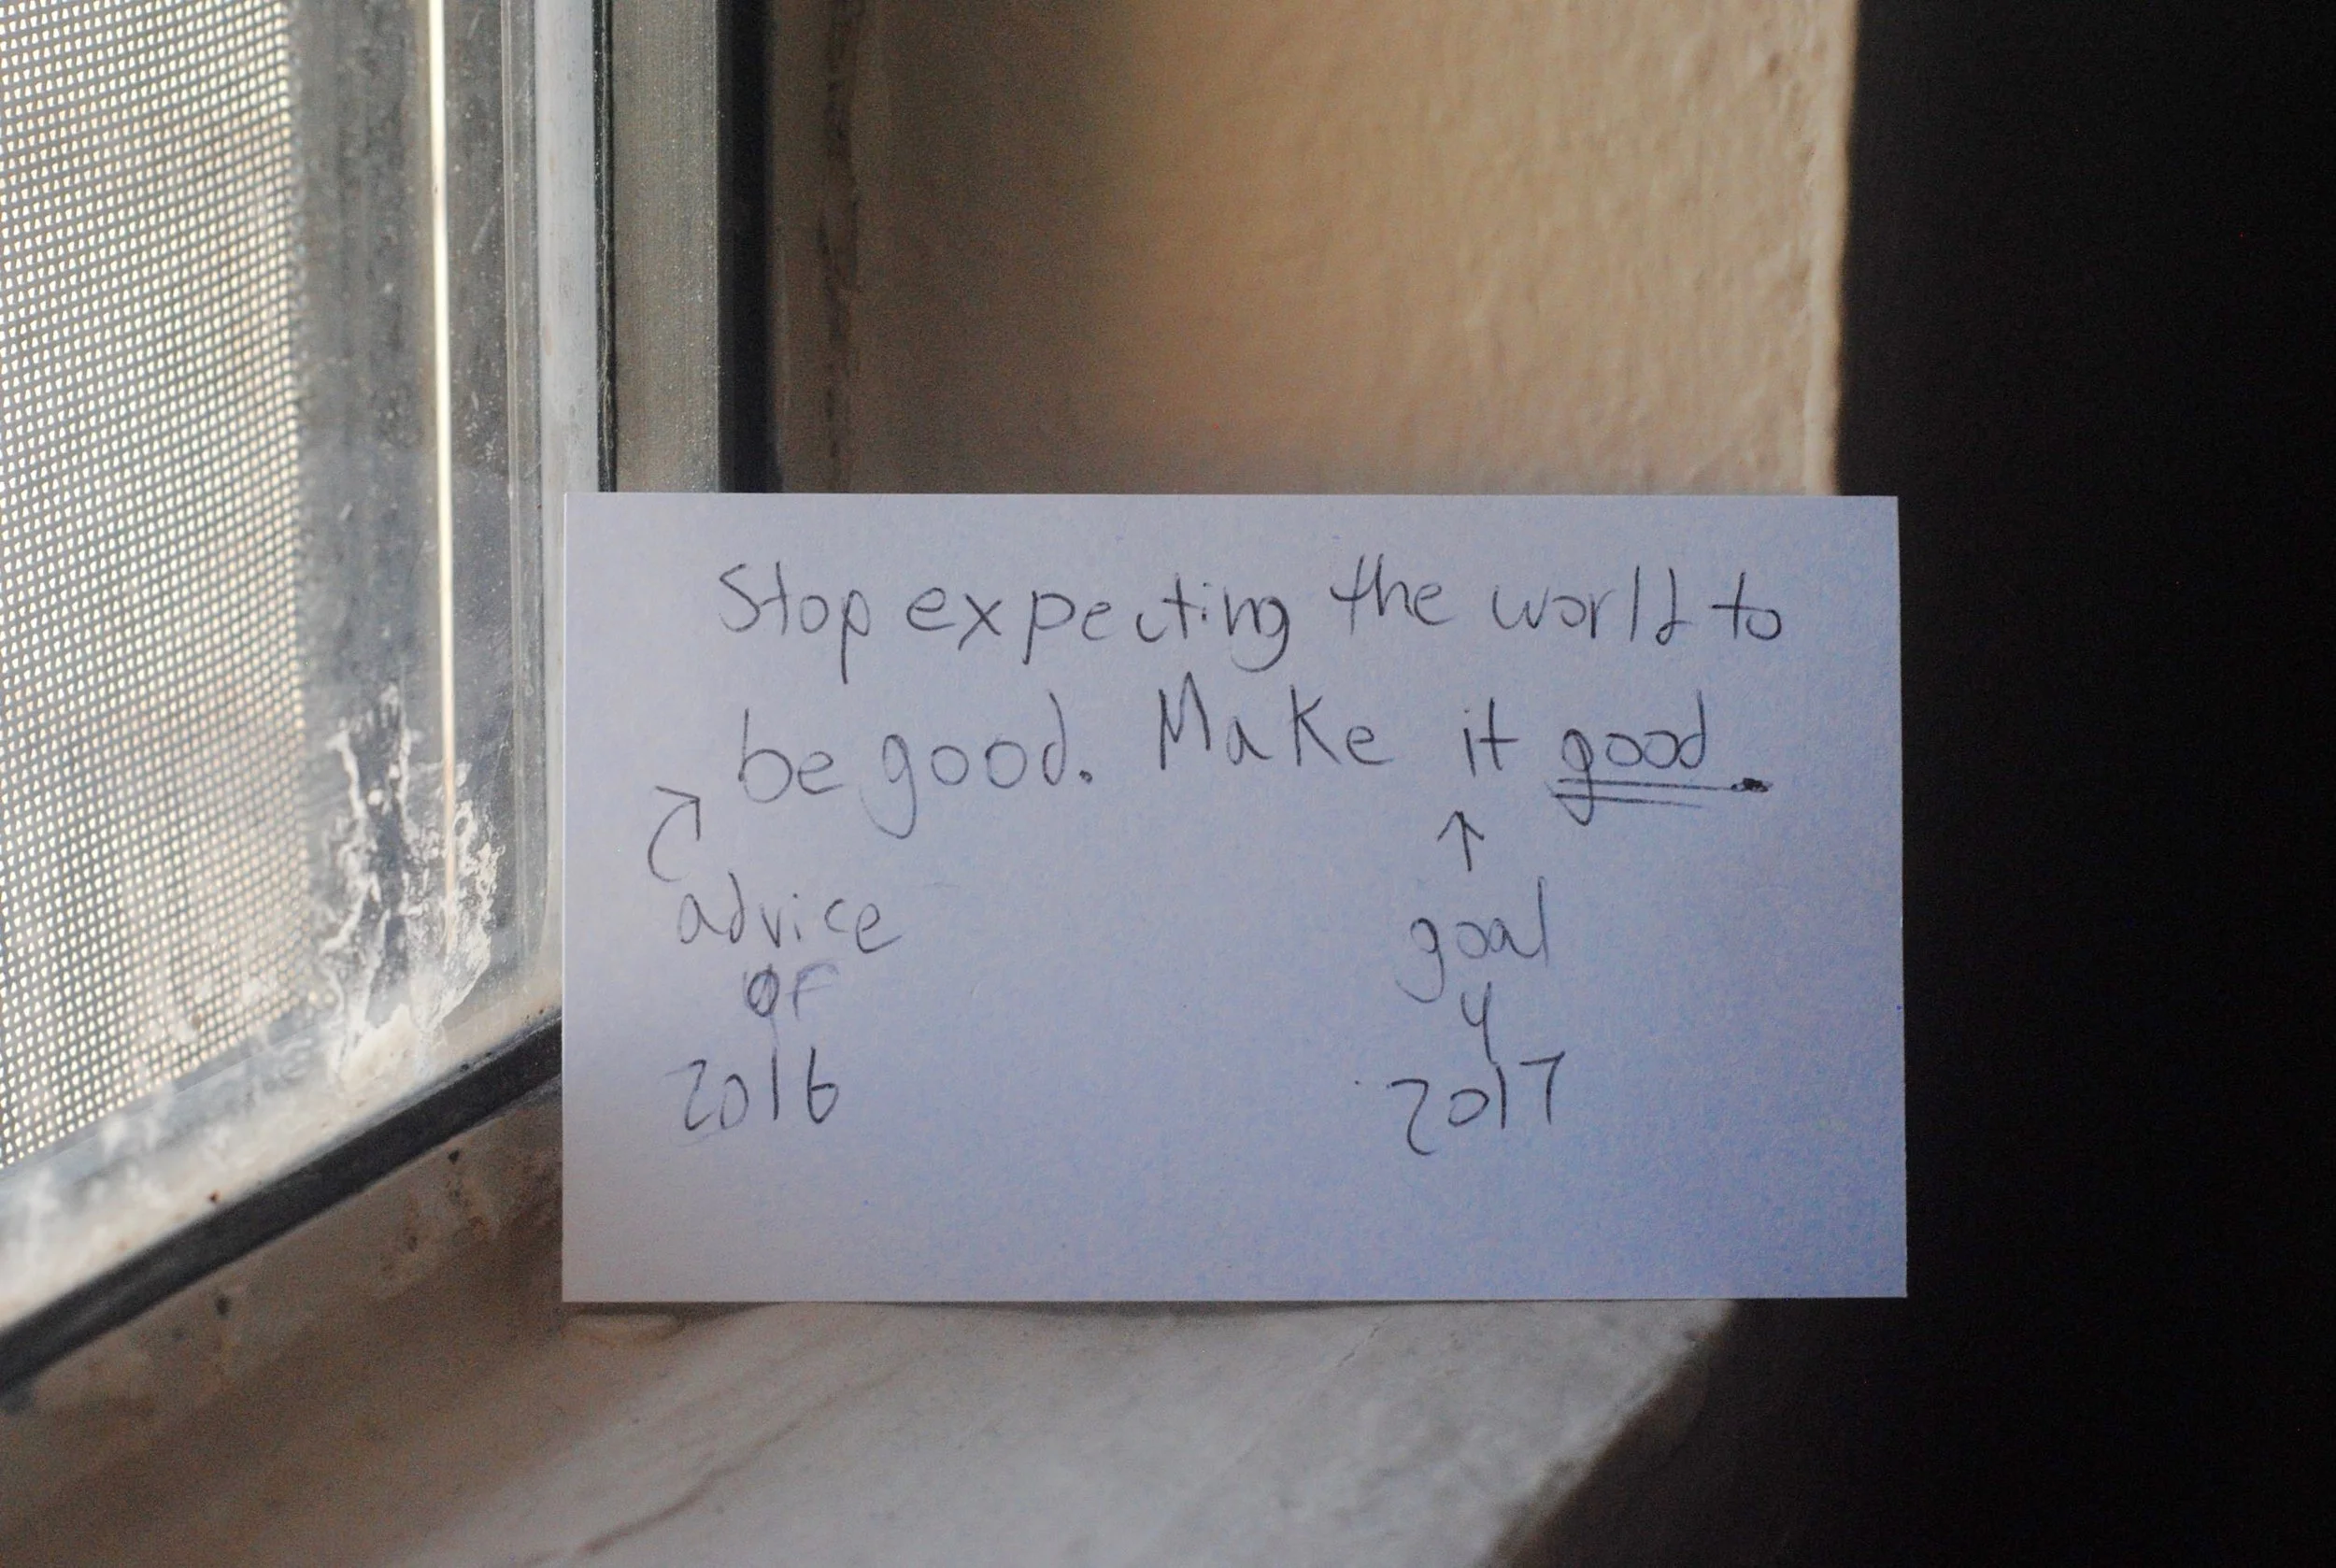 Stop expecting the world to
be good. Make it good.
advice
of
2016
goal
4
2017